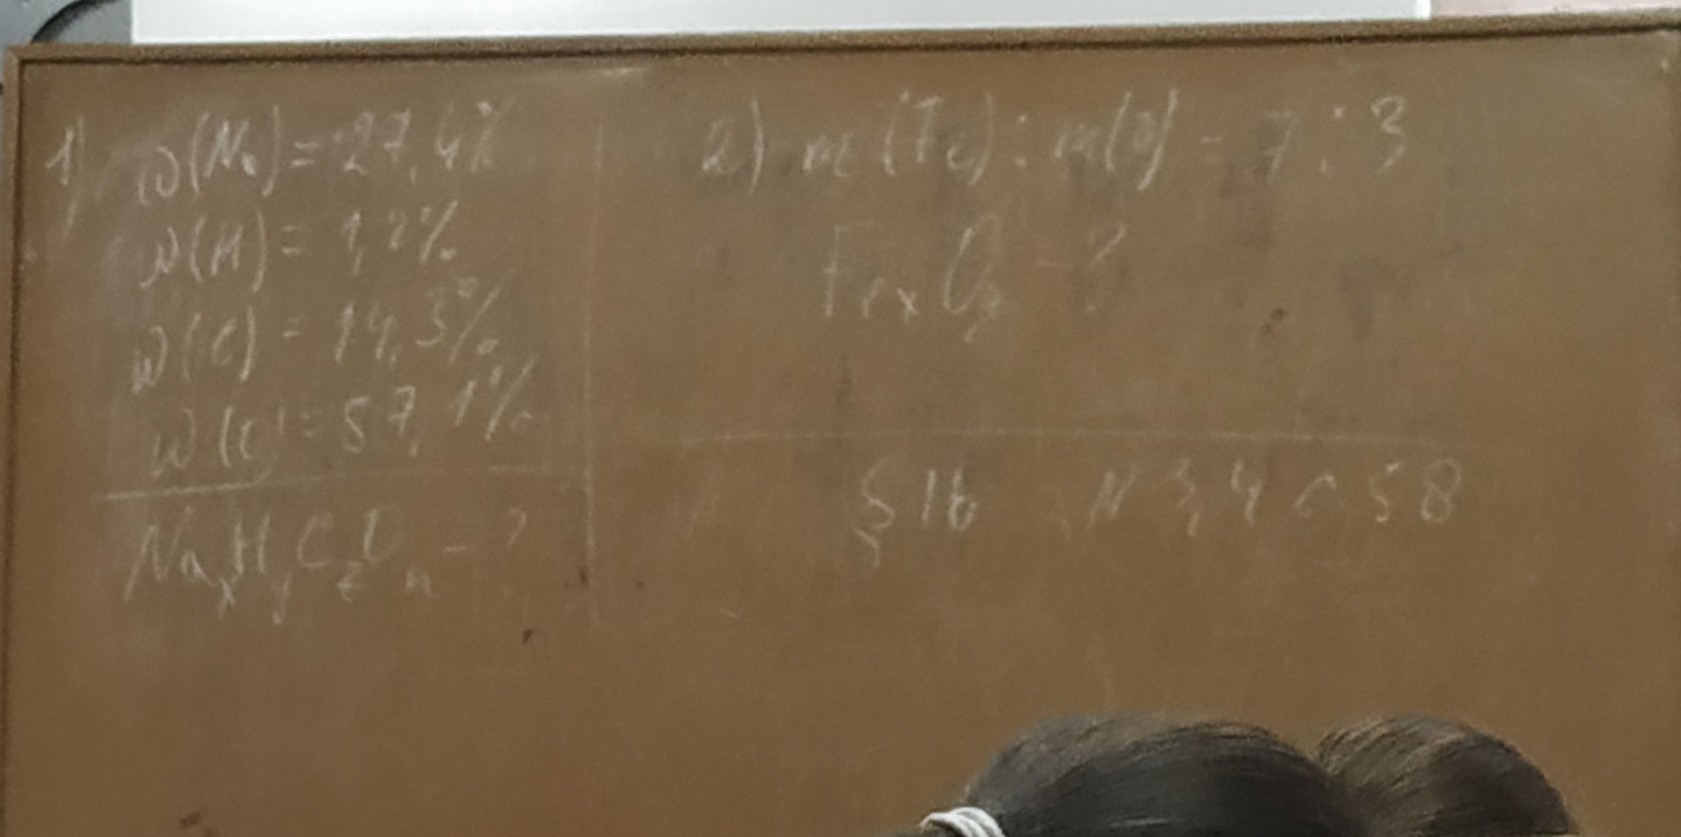 1) ω(Na) = 27,4%
ω(H) = 1,2%
ω(C) = 14,3%
ω(C) = 57,1%
NaxHyCzOn - ?
2) m(Fe) : m(O) = 7 : 3
FexOy - ?
§ 16 N 3,4 с 58